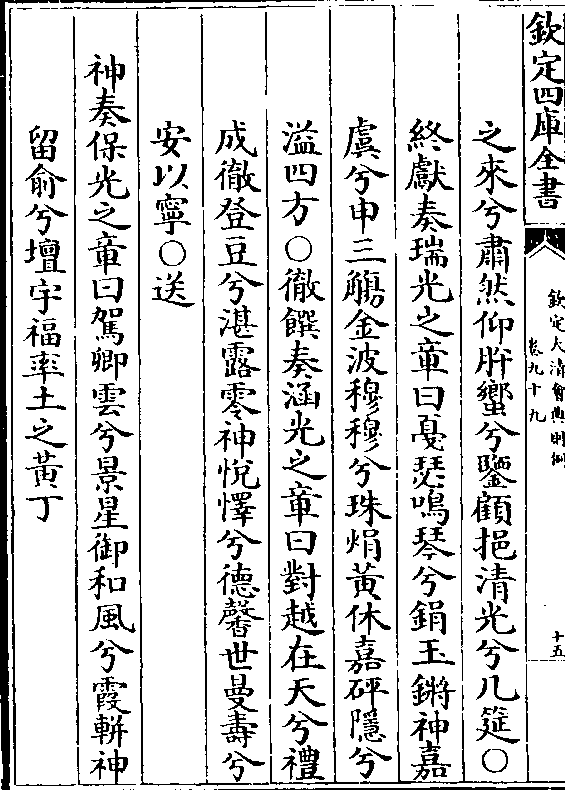 欽定四庫全書
欽定大清會典則例
卷九十九
十五
之來兮肅然仰肸蠁兮鑒顧挹清光兮几筵○
終獻奏瑞光之章曰戛瑟鳴琴兮鋗玉鏘神嘉
虞兮申三觴金波穆穆兮珠熉黃休嘉砰隱兮
溢四方○徹饌奏涵光之章曰對越在天兮禮
成徹登豆兮湛露零神悅懌兮德馨世曼壽兮
安以寧○送
神奏保光之章曰駕卿雲兮景星御和風兮霞軿神
留俞兮壇宇福率土之黃丁